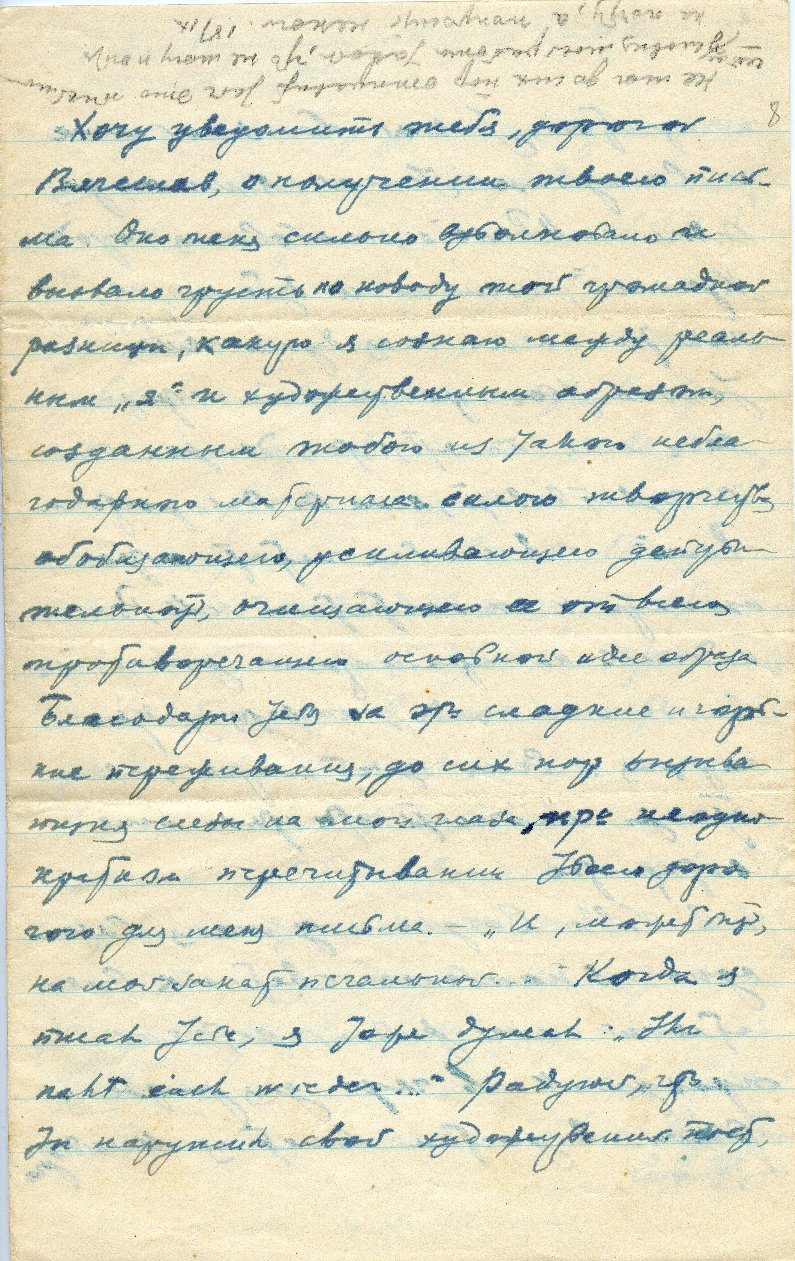 не мог до сих пор отправить Тебе это письмо
условия моей работы такой, что не могу пойти
на почту, а попросить некого. 18/IX
8
Хочу уведомить тебя, дорогой
Вячеслав, о получении твоего пись-
ма Оно меня сильно взволновало и
вызвало грусть по поводу той громадной
разницы, какую я сознаю между реаль-
ным „я“ и художественным образом,
созданным тобою из такого небла-
годарного материала силою творчества
обобщающего, усиливающего действи-
тельность, очищающего ее от всего
противоречащего основной идее образа
Благодарю Тебя за эти сладкие и горь-
кие переживания, до сих пор вызыва-
ющия слезы на мои глаза, при неодно-
кратном перечитывании Твоего доро-
гого для меня письма. – „И, может быть,
на мой закат печальный... Когда я
писал Тебе, я тоже думал: „Ihr
naht euch wieder...“ Радуюсь, что
Ты нарушил свой художественный пост,